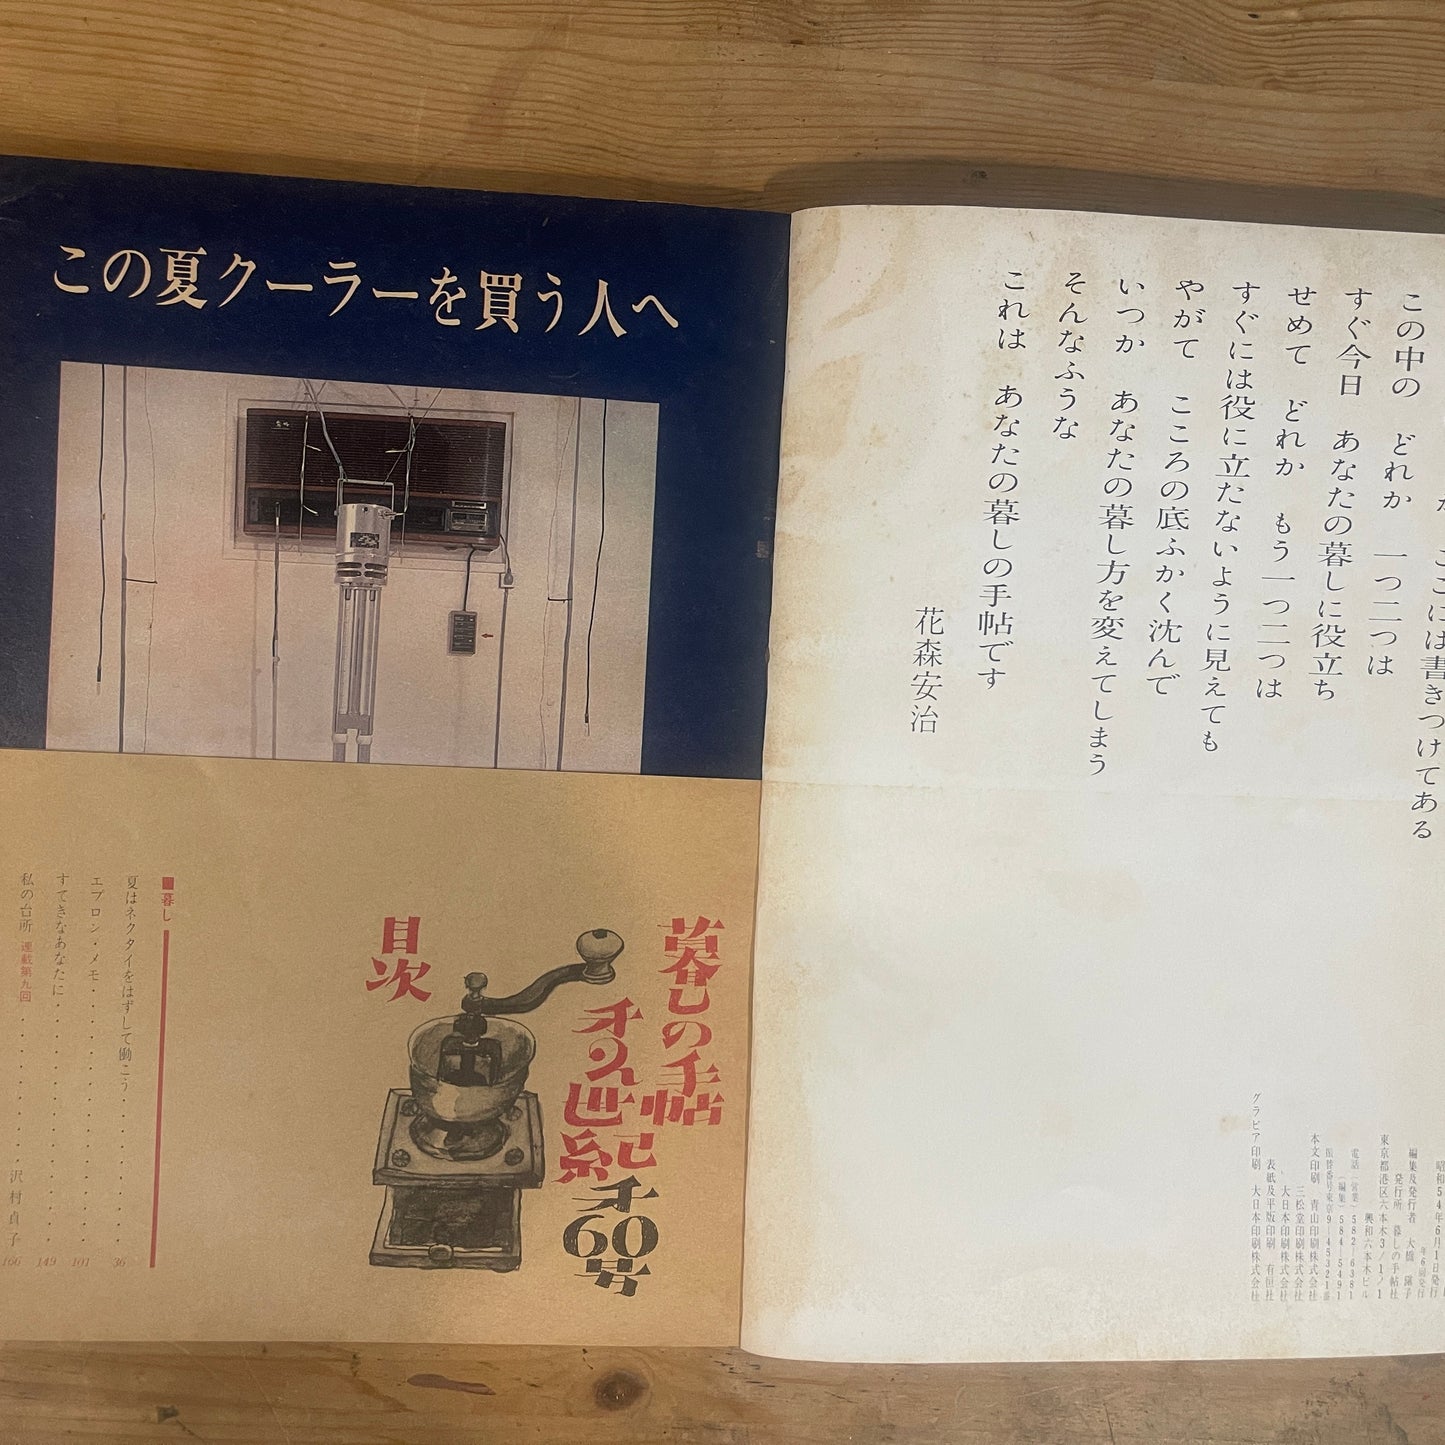 ここには書きつけてある
この中の どれか 一つ二つは
すぐ今日 あなたの暮しに役立ち
せめて どれか もう一つ二つは
すぐには役に立たないように見えても
やがて こころの底ふかく沈んで
いつか あなたの暮し方を変えてしまう
そんなふうな
これは あなたの暮しの手帖です
花森安治
昭和54年6月1日発行
年6回発行
編集及発行者 大橋
発行所 暮しの手帖社
東京都港区六本木3/1/1
興和六本木ビル
電話(営業)582-6381
(編集)584-5491
振替番号東京9-45321番
本文印刷 青山印刷株式会社
三松堂印刷株式会社
大日本印刷株式会社
表紙及平版印刷 有恒社
グラビア印刷 大日本印刷株式会社
この夏クーラーを買う人へ
暮しの手帖
オ2世紀
オ60号
目次
■暮し
夏はネクタイをはずして働こう 36
エプロン・メモ 101
すてきなあなたに 149
私の台所 連載第九回 沢村貞子 166